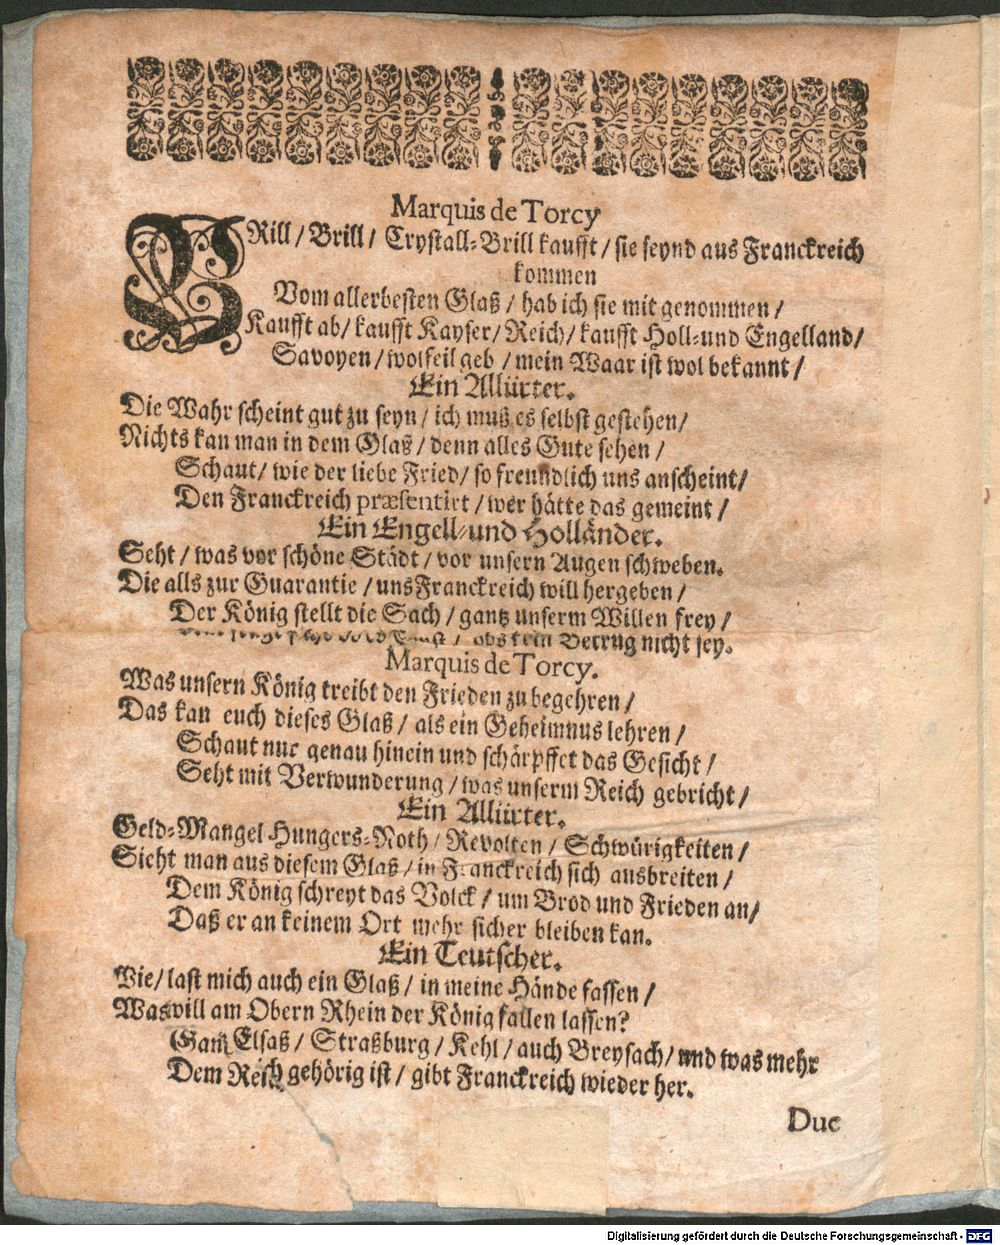 Marquis de Torcy
BRill / Brill / Crystall-Brill kaufft / sie seynd aus Franckreich
kommen
Vom allerbesten Glaß / hab ich sie mit genommen /
Kaufft ab / kaufft Kayser / Reich / kaufft Holl- und Engelland /
Savoyen / wolfeil geb / mein Waar ist wol bekannt /
Ein Alliirter.
Die Wahr scheint gut zu seyn / ich muß es selbst gestehen /
Nichts kan man in dem Glaß / denn alles Gute sehen /
Schaut / wie der liebe Fried / so freundlich uns anscheint /
Den Franckreich præsentirt / wer hätte das gemeint /
Ein Engell- und Holländer.
Seht / was vor schöne Städt / vor unsern Augen schweben.
Die alls zur Guarantie / uns Franckreich will hergeben /
Der König stellt die Sach / gantz unserm Willen frey /
Betrug nicht sey.
Marquis de Torcy.
Was unsern König treibt den Frieden zu begehren /
Das kan euch dieses Glaß / als ein Geheimnus lehren /
Schaut nur genau hinein und schärpffet das Gesicht /
Seht mit Verwunderung / was unserm Reich gebricht /
Ein Alliirter.
Geld-Mangel Hungers-Noth / Revolten / Schwürigkeiten /
Sieht man aus diesem Glaß / in Franckreich sich ausbreiten /
Dem König schreyt das Volck / um Brod und Frieden an /
Daß er an keinem Ort mehr sicher bleiben kan.
Ein Teutscher.
Wie / last mich auch ein Glaß / in meine Hände fassen /
Was will am Obern Rhein der König fallen lassen?
Elsaß / Straßburg / Kehl / auch Breysach / und was mehr
Dem Reich gehörig ist / gibt Franckreich wieder her.
Duc
Digitalisierung gefördert durch die Deutsche Forschungsgemeinschaft - DFG